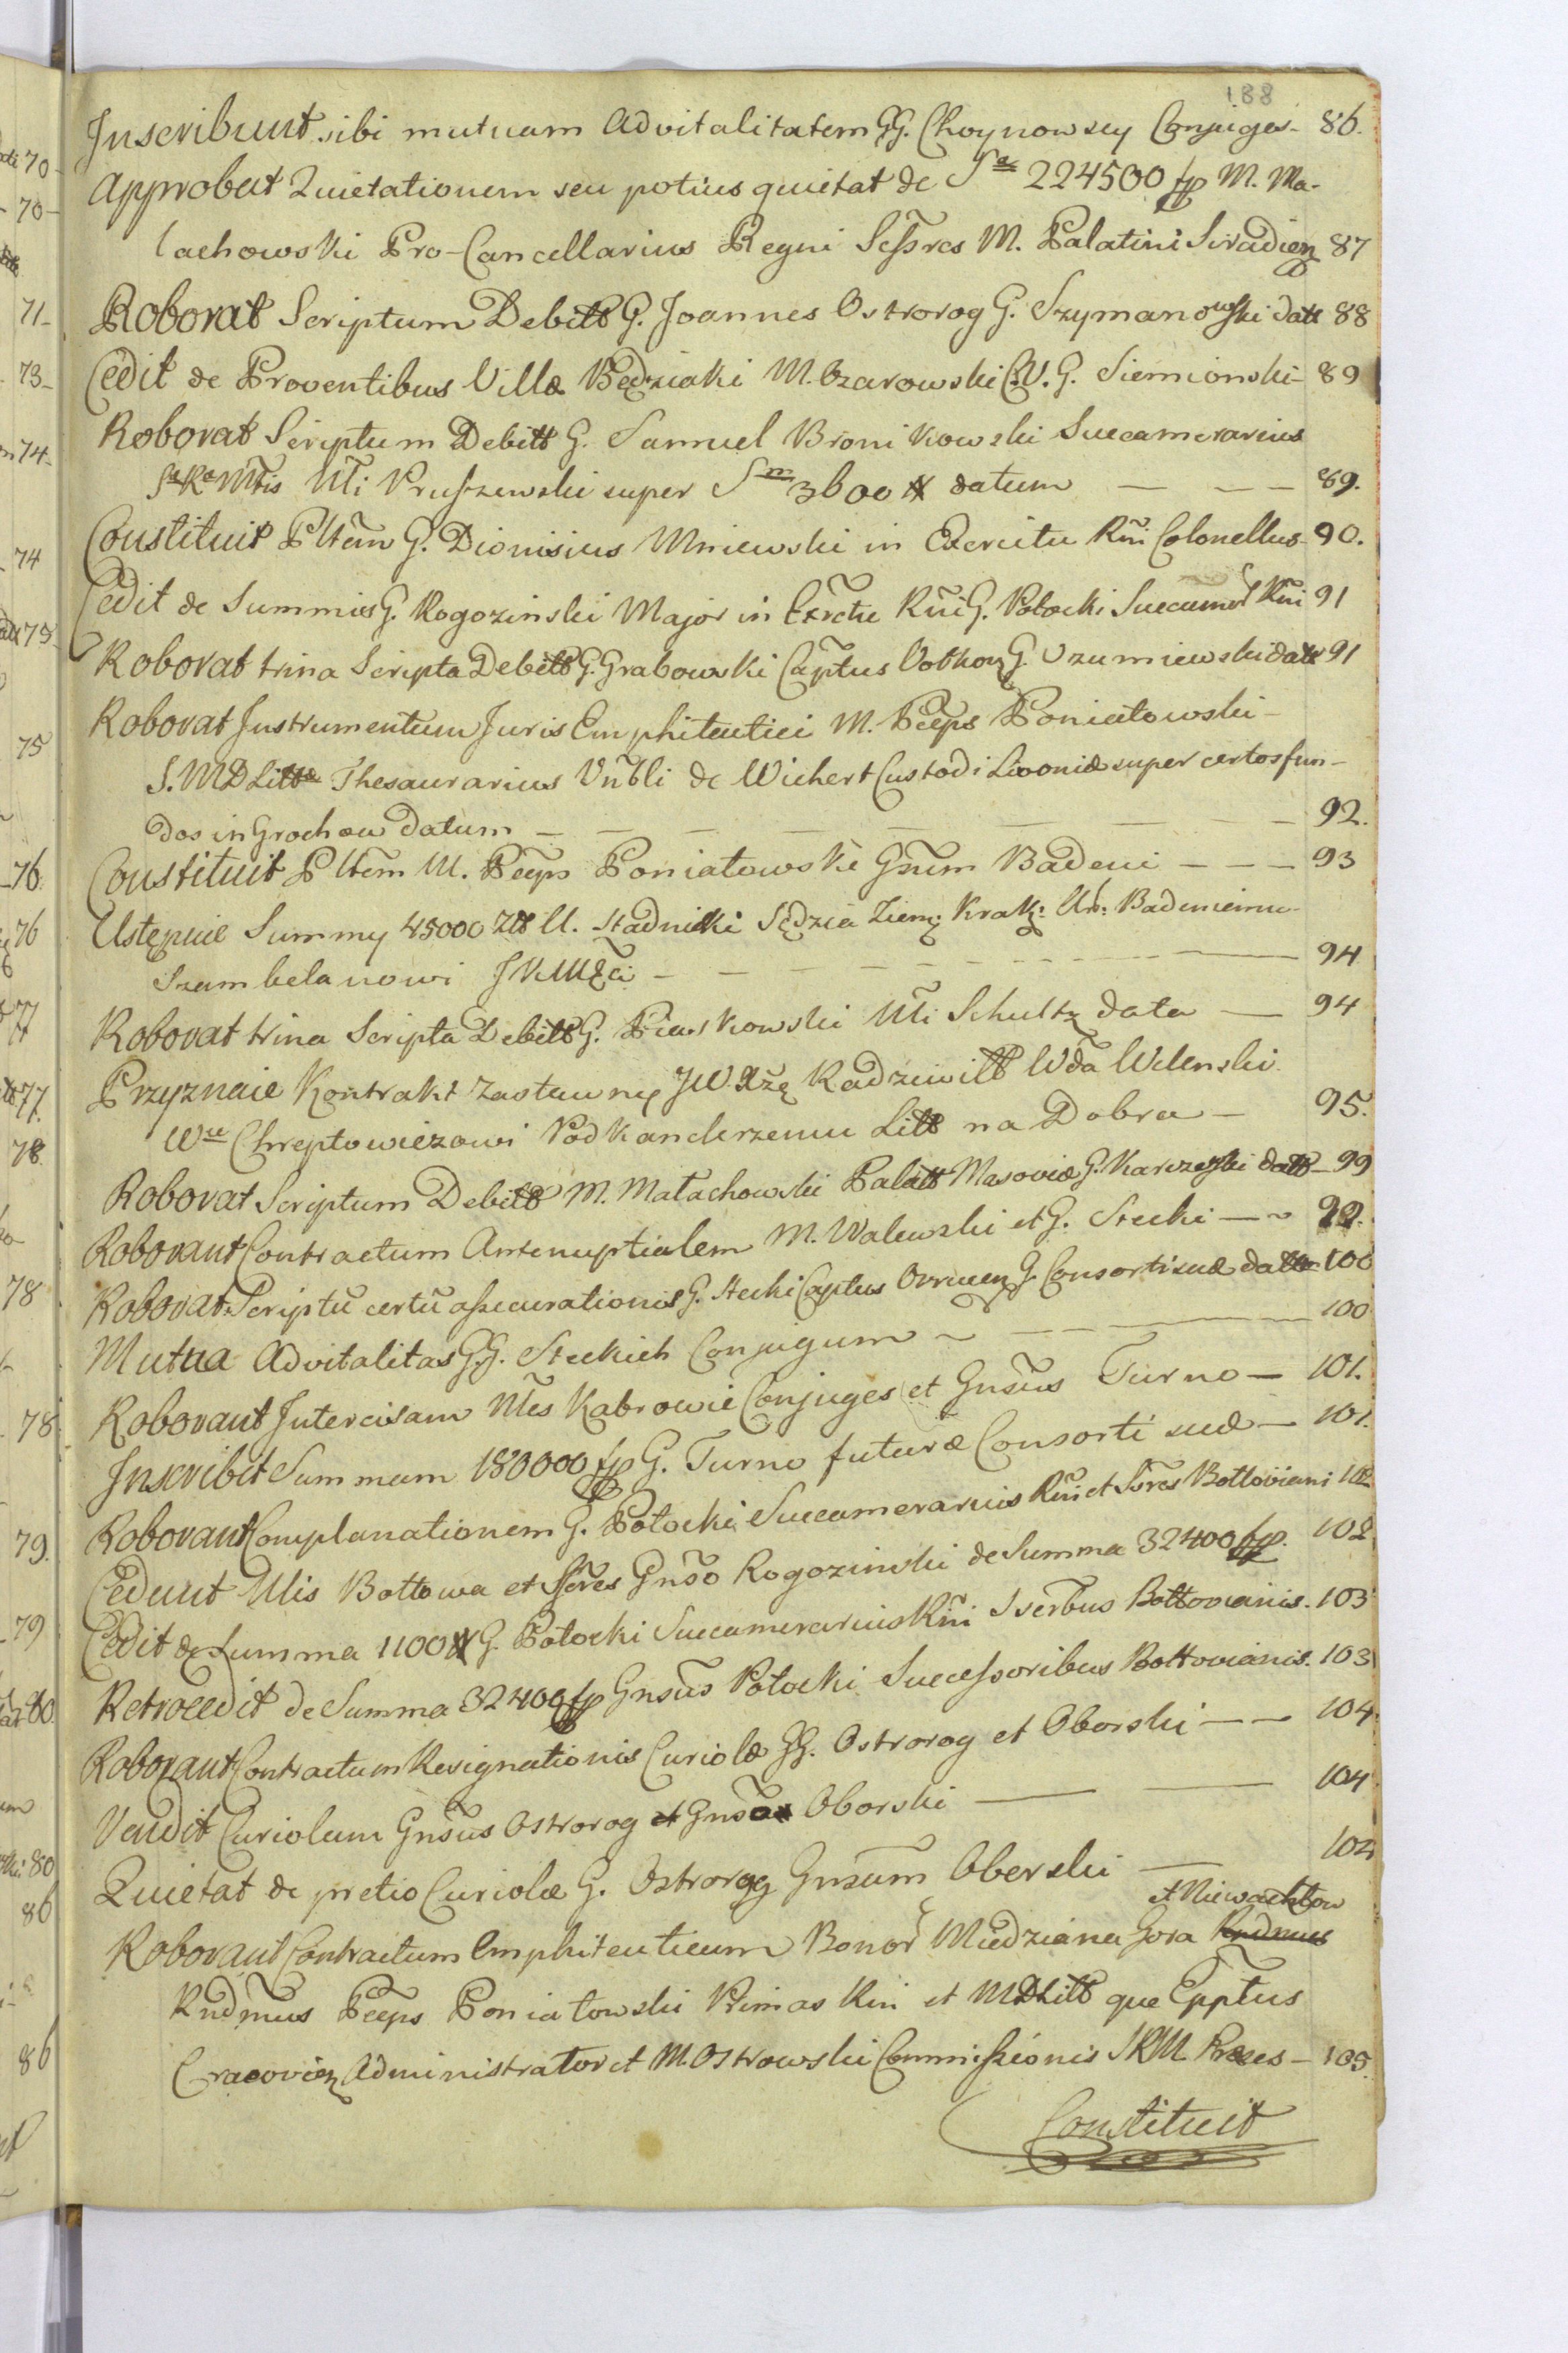 188
Inscribunt sibi mutuam Advitalitatem GG. Choynowscy Conjuges - 86.
Approbat Quietationem seu potius quietat de Sa 224500 fp M. Ma-
lachowski Pro-Cancellarius Regni Sessres M. Palatini Siradien 87
Roborat Scriptum Debitt G. Joannes Ostrorog G. Szymanowski datt 88
Cedit de Proventibus Villæ Będziaki M. Ozarowski C.V. G. Siemionski - 89
Roborat Scriptum Debitt G. Samuel Bronikowski Succamerarius
Sa Ra Mtis Mti Pruszewski super Sm 3600 # datum — — — 89.
Constituit Pltem G. Dionisius Mniewski in Exercitu Rni Colonellus - 90.
Cedit de Summis G. Rogozinski Major in Exrctu Rni G. Potocki Succamer Rni 91
Roborat trina Scripta Debitt G. Grabowski Captus Votkon G. Uzumiewski datt 91
Roborat Instrumentum Juris Emphiteutici M. Pceps Poniatowski -
S. MDLittæ Thesaurarius Vnbli de Wichert Custodi Livoniæ super certos fun-
dos in Grochow datum — — — — — — — 92.
Constituit Pltem M. Pceps Poniatowski Gnsum Badeni — — — 93
Ustępuie Summy 45000 Złt U. Stadnicki Sędzia Ziem: Krak: Ur: Badeniemu
Szambelanowi JKMCi — — — — — — — 94
Roborat trina Scripta Debitt G. Piaskowski Mti Schultz data — 94
Przyznaie Kontrakt zastawny JW. Xżę Radziwiłł Wda Wilenski
Wu Chreptowiczowi Podkanclerzemu Litt na Dobra — 95.
Roborat Scriptum Debitt M. Małachowski Palatt Masoviæ G. Karczewski datt - 99
Roborant Contractum Antenuptialem M. Walewski et G. Stecki — ~ 99.
Roborat Scriptu certu assecurationis G. Stecki Captus Ovrucen G. Consorti suæ dattm 100
Mutua Advitalitas GG. Steckich Conjugum ~ — — — — 100
Roborant Intercisam Mes Kabrowie Conjuges et Gnsus Turno — 101.
Inscribit Summam 180000 fp G. Turno futuræ Consorti suæ — 101.
Roborant Complanationem G. Potocki Succamerarius Rni et Ssres Bottoviani 102
Cedunt Mlis Bottowa et Ssres Gnso Rogozinski de Summa 32400 fp. 102
Cedit de Summa 1100 # G. Potocki Succamerarius Rni Sserbus Bottovianis. 103
Retrocedit de Summa 32400 fp Gnsus Potocki Successoribus Bottovianis. 103
Roborant Contractum Resignationis Curiolæ GG. Ostrorog et Oborski — — 104.
Vendit Curiolam Gnsus Ostrorog et Gnso Oborski — — 104
Quietat de pretio Curiolæ G. Ostrorog Gnsum Oborski — 104
et Niewachlow
Roborant Contractum Emphiteuticum Bonor Miedziana Gora Rndmus
Rndmus Pceps Poniatowski Primas Rni et MDLitt que Epptus
Cracovien Administrator et M. Ostrowski Commissionis SRM. Præses — 105.
Constituit